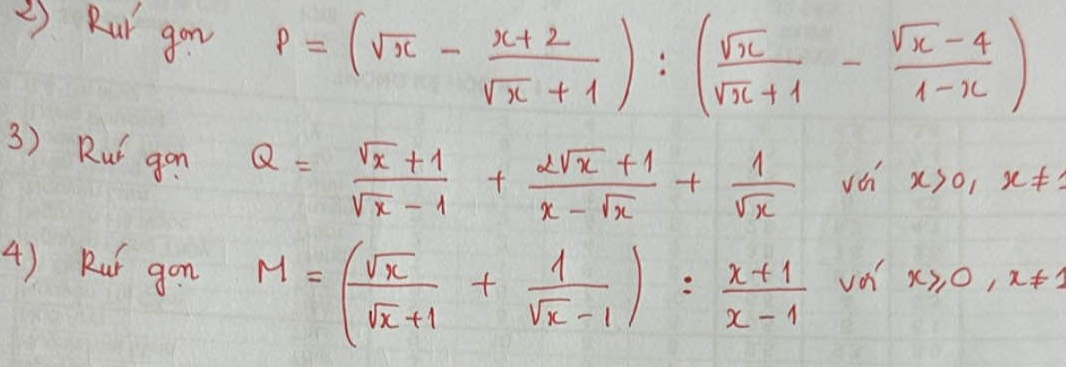 2) Rút gọn P = (√x - (x+2)/(√x + 1)) : (√x/(√x + 1) - (√x - 4)/(1 - x))
3) Rút gọn Q = (√x + 1)/(√x - 1) + (2√x + 1)/(x - √x) + 1/√x với x>0, x≠1
4) Rút gọn M = (√x/(√x + 1) + 1/(√x - 1)) : (x + 1)/(x - 1) với x⩾0, x≠1